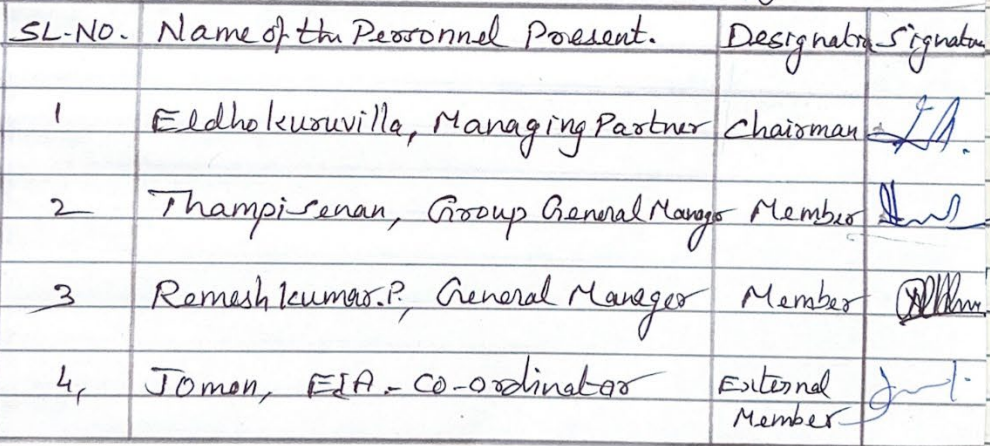 SL.NO. Name of the Personnel Present. Designation Signature
1 Eldho kuruvilla, Managing Partner Chairman
2 Thampisenan, Group General Manager Member
3 Remesh kumar.P, General Manager Member
4, Jomon, EIA - Co-ordinator External
Member